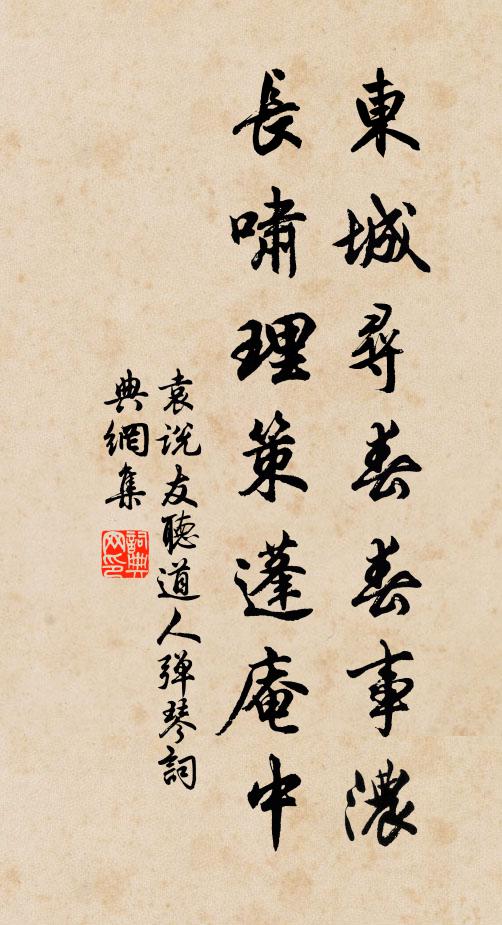 東城尋春春事濃
長嘯理策蓬庵中
袁說友聽道人彈琴詞
典網集
詞典网印